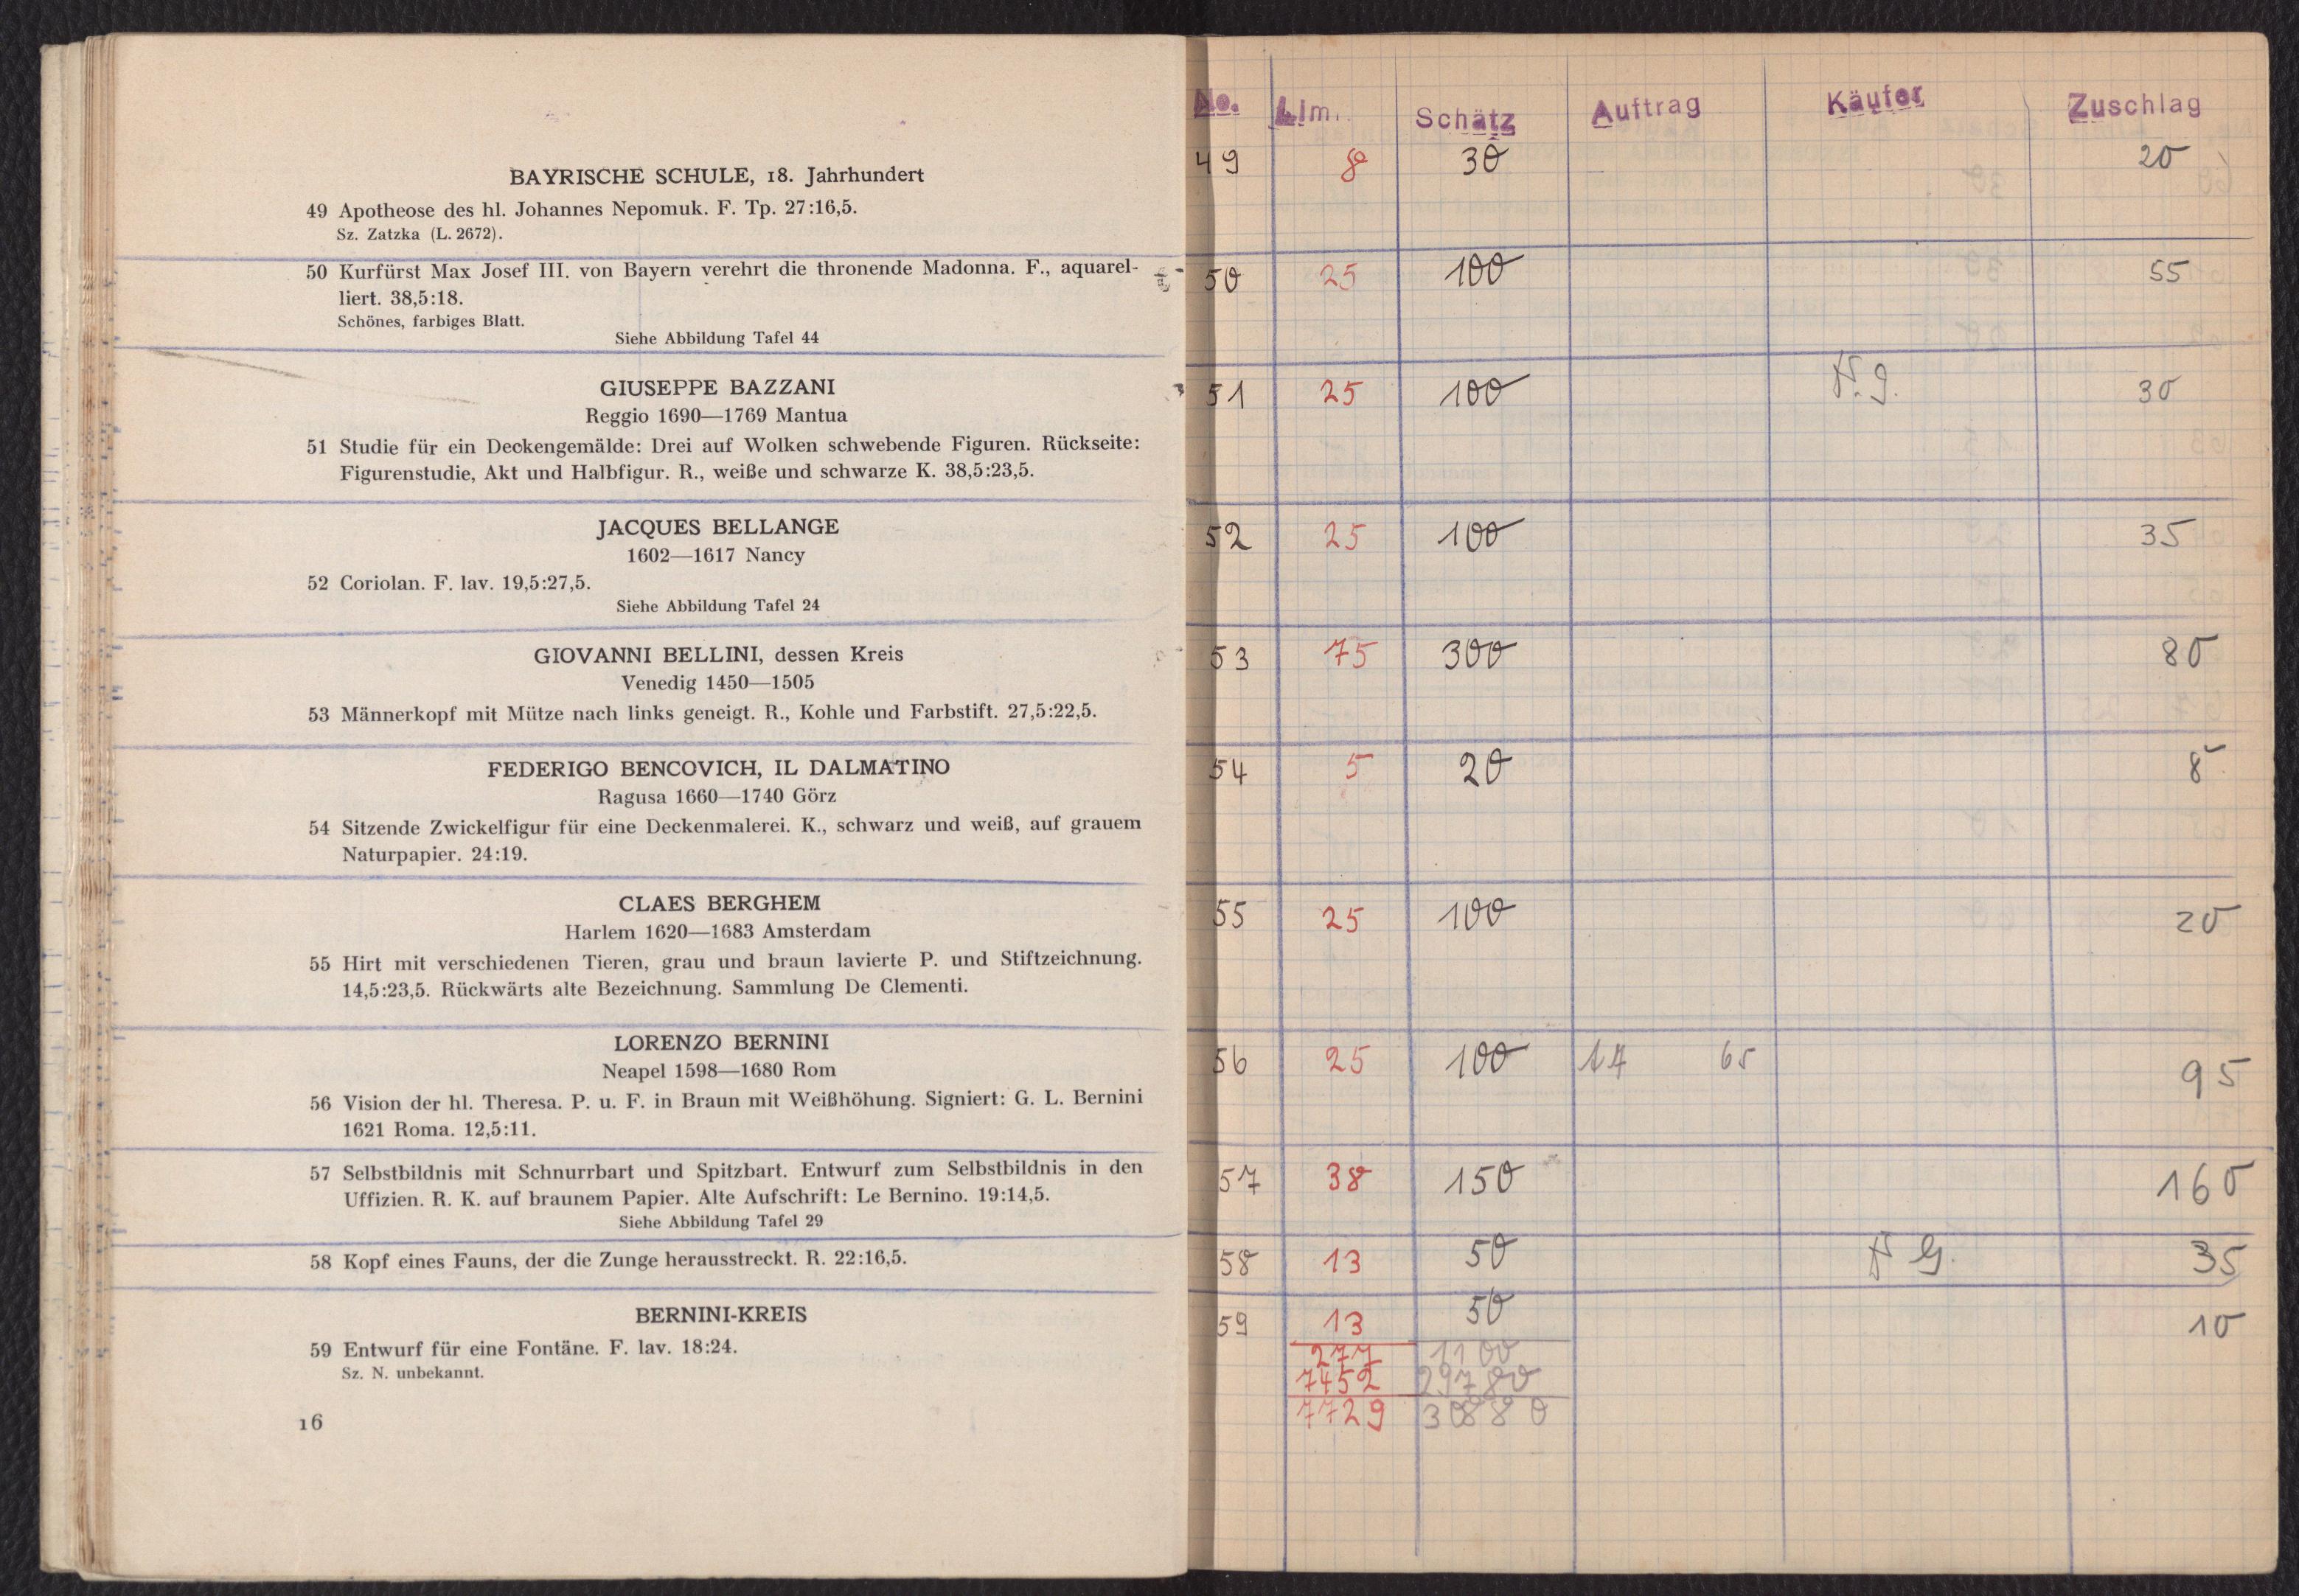 BAYRISCHE SCHULE, 18. Jahrhundert
49 Apotheose des hl. Johannes Nepomuk. F. Tp. 27:16,5.
Sz. Zatzka (L. 2672).
50 Kurfürst Max Josef III. von Bayern verehrt die thronende Madonna. F., aquarel-
liert. 38,5:18.
Schönes, farbiges Blatt.
Siehe Abbildung Tafel 44
GIUSEPPE BAZZANI
Reggio 1690—1769 Mantua
51 Studie für ein Deckengemälde: Drei auf Wolken schwebende Figuren. Rückseite:
Figurenstudie, Akt und Halbfigur. R., weiße und schwarze K. 38,5:23,5.
JACQUES BELLANGE
1602—1617 Nancy
52 Coriolan. F. lav. 19,5:27,5.
Siehe Abbildung Tafel 24
GIOVANNI BELLINI, dessen Kreis
Venedig 1450—1505
53 Männerkopf mit Mütze nach links geneigt. R., Kohle und Farbstift. 27,5:22,5.
FEDERIGO BENCOVICH, IL DALMATINO
Ragusa 1660—1740 Görz
54 Sitzende Zwickelfigur für eine Deckenmalerei. K., schwarz und weiß, auf grauem
Naturpapier. 24:19.
CLAES BERGHEM
Harlem 1620—1683 Amsterdam
55 Hirt mit verschiedenen Tieren, grau und braun lavierte P. und Stiftzeichnung.
14,5:23,5. Rückwärts alte Bezeichnung. Sammlung De Clementi.
LORENZO BERNINI
Neapel 1598—1680 Rom
56 Vision der hl. Theresa. P. u. F. in Braun mit Weißhöhung. Signiert: G. L. Bernini
1621 Roma. 12,5:11.
57 Selbstbildnis mit Schnurrbart und Spitzbart. Entwurf zum Selbstbildnis in den
Uffizien. R. K. auf braunem Papier. Alte Aufschrift: Le Bernino. 19:14,5.
Siehe Abbildung Tafel 29
58 Kopf eines Fauns, der die Zunge herausstreckt. R. 22:16,5.
BERNINI-KREIS
59 Entwurf für eine Fontäne. F. lav. 18:24.
Sz. N. unbekannt.
16
No. Lim. Schätz Auftrag Käufer Zuschlag
49 8 30 20
50 25 100 55
51 25 100 N.G. 30
52 25 100 35
53 75 300 80
54 5 20 8
55 25 100 20
56 25 100 17 65 95
57 38 150 160
58 13 50 N G. 35
59 13 50 10
277 1100
7452 29780
7729 30880